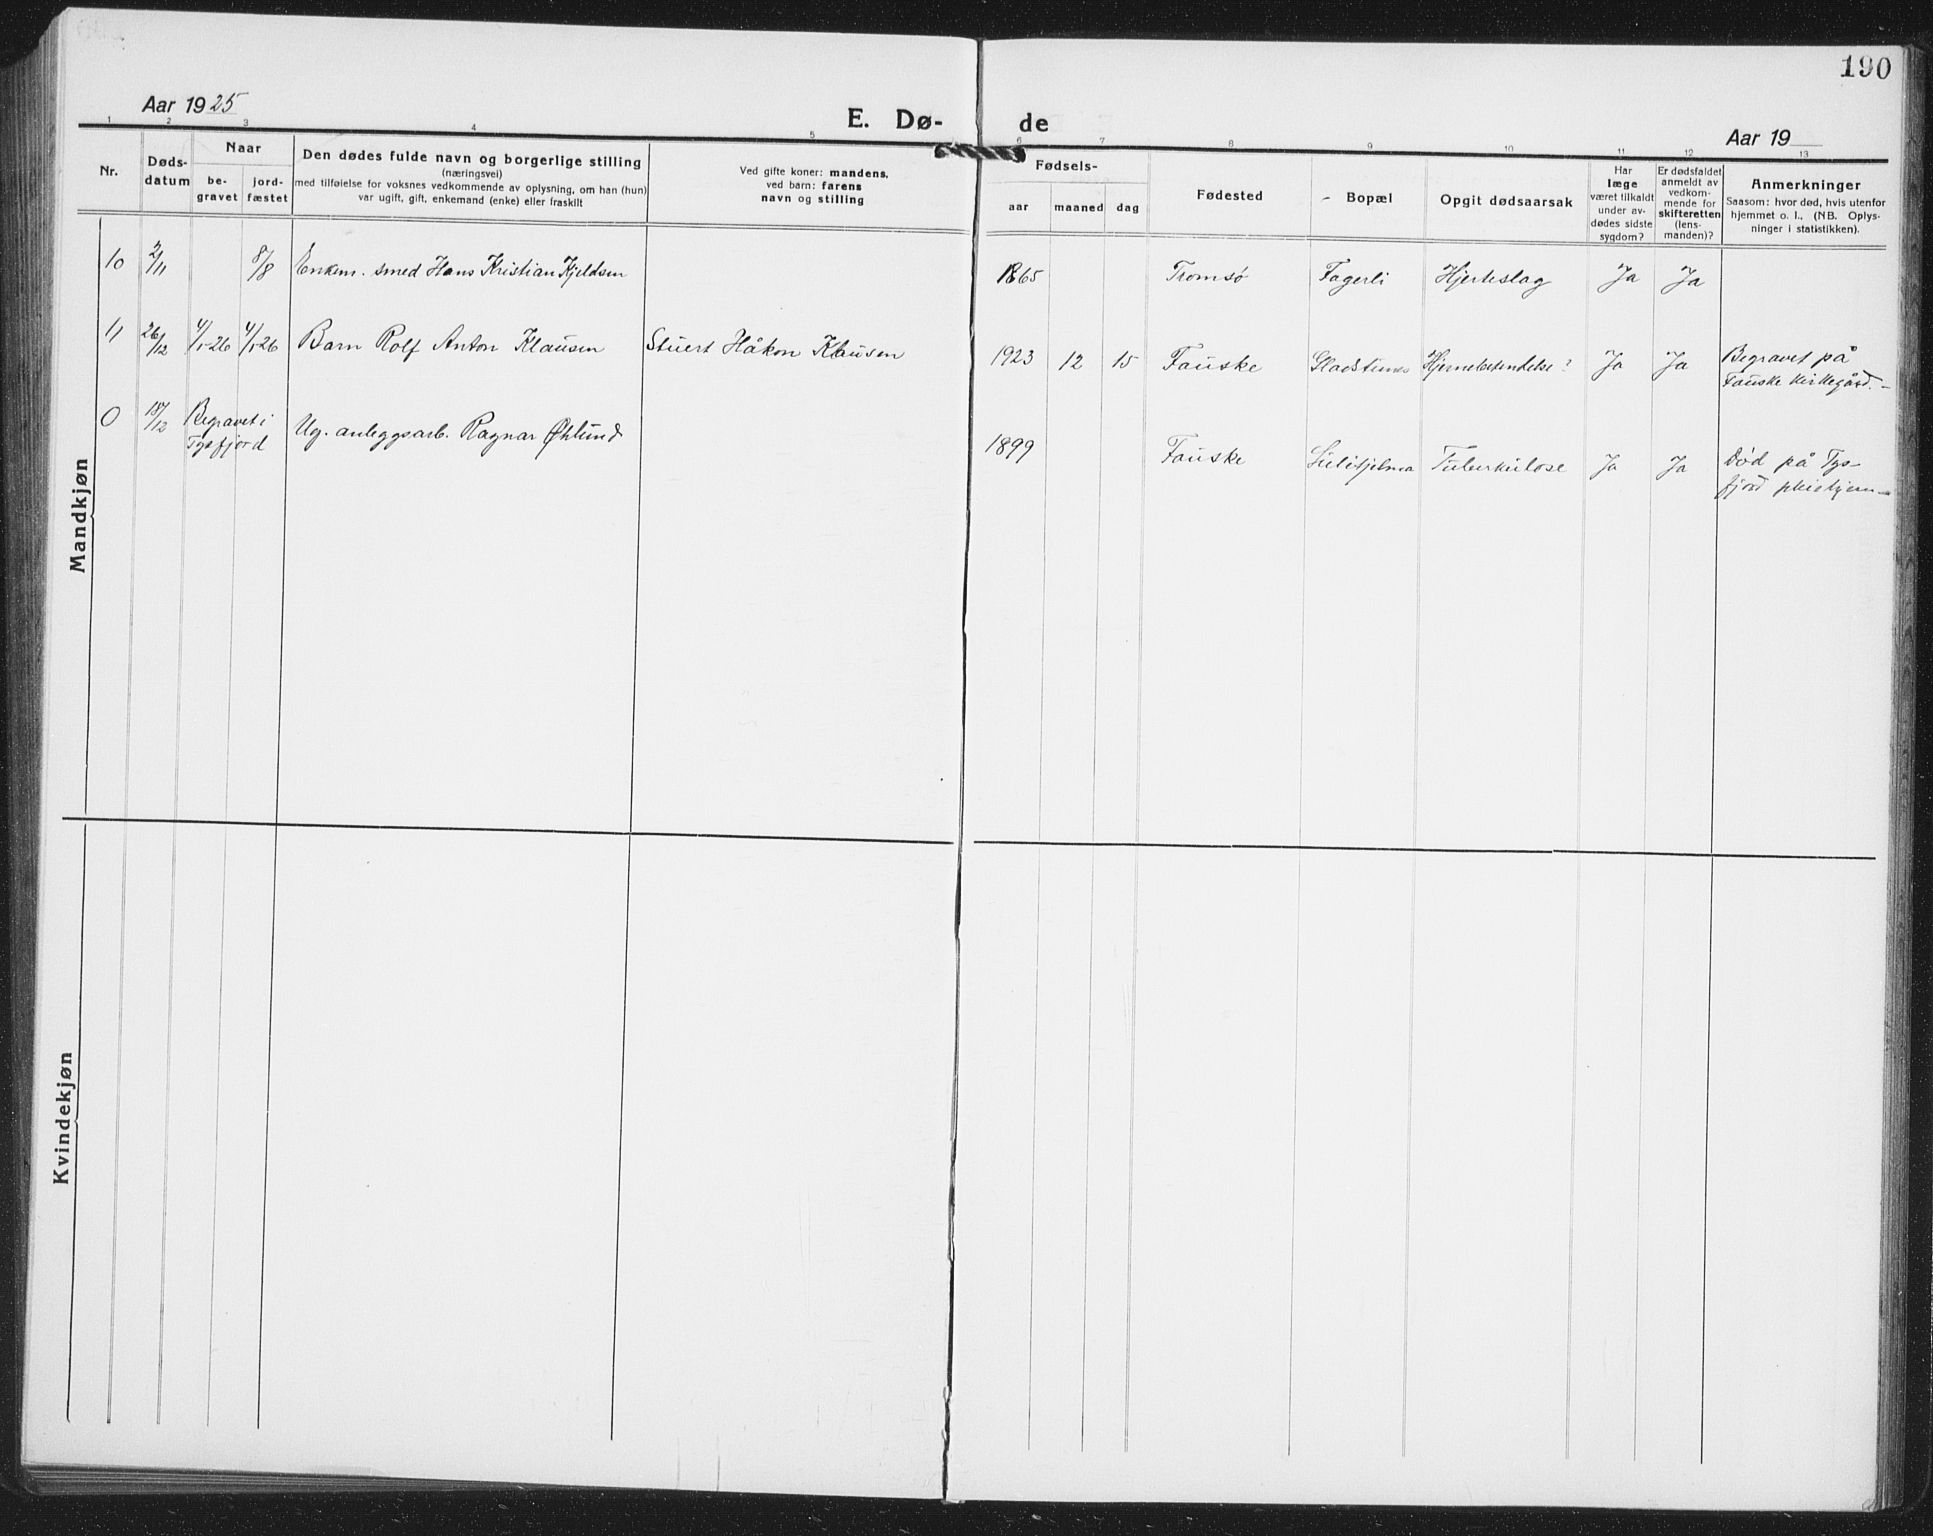 190
Aar 1925
E. Dø-
de
Aar 19
1 2 3 4 5 6 7 8 9 10 11 12 13
Nr.
Døds-
datum
Naar
be-
gravet
jord-
fæstet
Den dødes fulde navn og borgerlige stilling
(næringsvei)
med tilføielse for voksnes vedkommende av oplysning, om han (hun)
var ugift, gift, enkemand (enke) eller fraskilt
Ved gifte koner: mandens,
ved barn: farens
navn og stilling
Fødsels-
aar
maaned
dag
Fødested
Bopæl
Opgit dødsaarsak
Har
læge
været tilkaldt
under av-
dødes sidste
sygdom?
Er dødsfaldet
anmeldt av
vedkom-
mende for
skifteretten
(lens-
manden)?
Anmerkninger
Saasom: hvor død, hvis utenfor
hjemmet o. l., (NB. Oplys-
ninger i statistikken).
Mandkjøn
10 2/11 8/8 Enkem. smed Hans Kristian Kjeldsen 1865 Tromsø Fagerli Hjerteslag Ja Ja
11 26/12 4/1-26 4/1-26 Barn Rolf Anton Klausen Stuert Håkon Klausen 1923 12 15 Fauske Hjernebetendelse? Ja Ja Begravet på
Fauske kirkegård.-
0 18/12 Begravet i
Tysfjord
Ug. anleggsarb. Ragnar Øhlund 1899 Fauske Sulitjelma Tuberkulose Ja Ja Død på Tys-
fjord pleiehjem-
Kvindekjøn